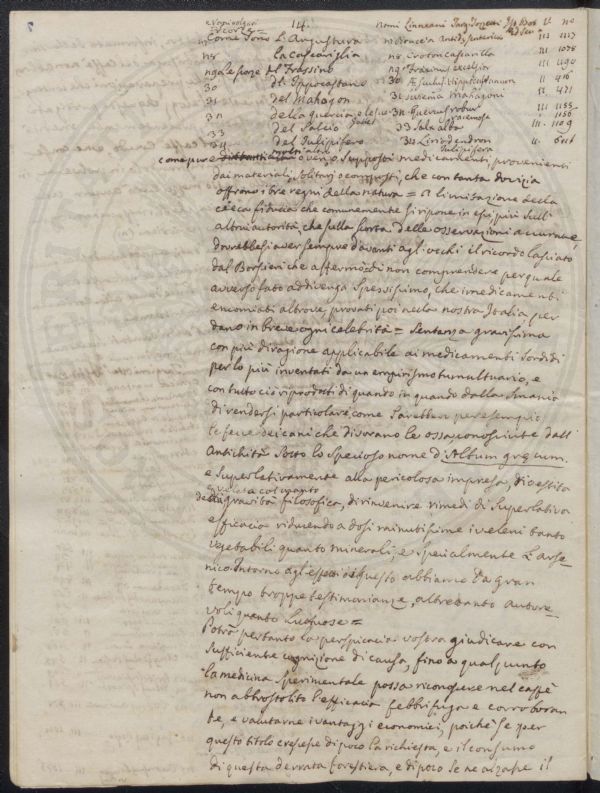 14.
e vegni volgari nomi Linneani Targ. Tozzetti Ist. Bot. V. n.o
Scorze =
Come sono L'Angustura antidysenterica III 1117
n8 la Cascariglia n8 Croton cascarilla III 1078
del Frassino Fraxinus excelsa III 1190
30 dell'Ippocastano 30 Aesculus Hippocastanum II 416
31 del Mahagon 31 Swietenia Mahagoni II 471
della quercia Quercus robur III 1155
1156
33 del Salcio 33 Salix alba III 1109
34 del Tulipifero 34 Liriodendron II
Tulipifera
come pure molti altri o veri o supposti medicamenti provenienti
dai materiali solitari o composti, che con tanta dovizia
offrono i tre regni della natura = A limitazione della
cieca fiducia che comunemente si ripone in essi più sull'
altrui autorità, che sulla scorta delle osservazioni accurate,
dovrebbesi aver sempre davanti agli occhi il ricordo lasciato
dal Borsieri che affermò di non comprendere per quale
avverso fato addivenga spessissimo, che i medicamenti
encomiati altrove, provati poi nella nostra Italia per
dano in breve ogni celebrità = Sentenza gravissima
con più di ragione applicabile ai medicamenti sordidi
per lo più inventati da un empirismo tumultuario, e
con tutto ciò riprodotti di quando in quando dalla smania
di rendersi particolare come sarebber per esempio
le fecce dei cani che divorano le ossa conosciute dall'
Antichità sotto lo specioso nome d'Album graecum.
e superlativamente alla pericolosa impresa,
della gravità filosofica, di rinvenire rimedi di superlativa
efficacia riducendo a dosi minutissime i veleni tanto
vegetabili quanto minerali, e specialmente l'arse-
nico. Intorno agl'effetti di questo abbiamo da gran
tempo troppe testimonianze, altrettanto autore-
voli quanto luttuose =
Potrà pertanto la perspicacia vostra giudicare con
sufficiente cognizione di causa, fino a qual punto
la medicina sperimentale possa riconoscere nel caffè
non abbrostolito l'efficacia febbrifuga e corroboran
te, e valutarne i vantaggi economici, poiché se per
questo titolo crescesse di poco la richiesta, e il consumo
di questa derrata forestiera, e di poco se ne alzasse il